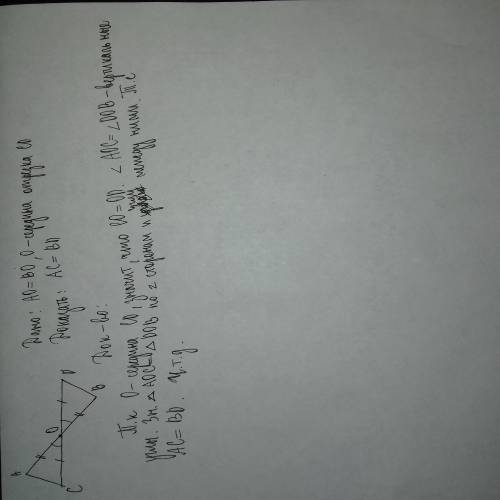 A
O
D
C
B
Дано: AO=BO, O-середина отрезка CD
Доказать: AC=BD
Док-во:
Т.к O-середина CD, значит, что CO=OD. ∠AOC=∠DOB-вертикальные
углы. Зн. △AOC=△DOB по 2 сторонам и углу между ними. Т.е
AC=BD. Ч.т.д.